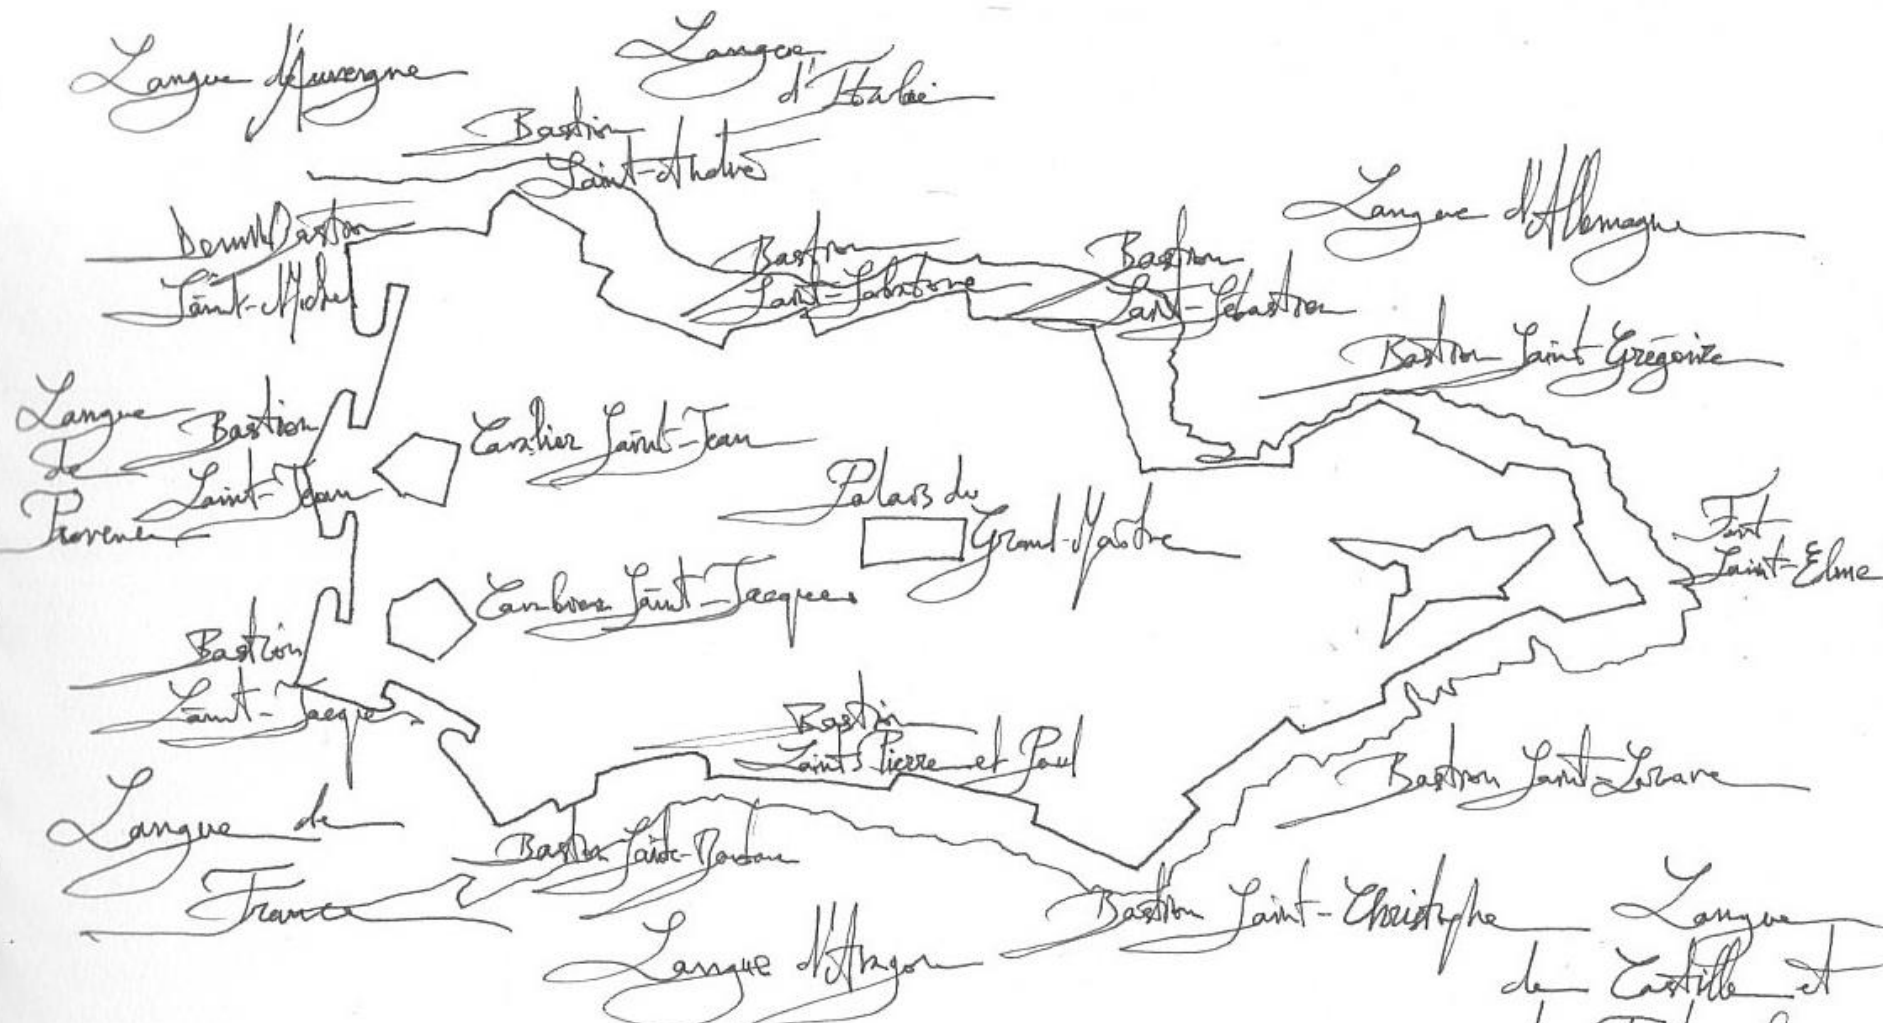 Langue d'Auvergne
Langue
d'Italie
Bastion
Saint-André
Demi-Bastion
Saint-Michel
Bastion
Saint-Salvatore
Bastion
Saint-Sébastien
Langue d'Allemagne
Bastion Saint-Grégoire
Langue
de
Provence
Bastion
Saint-Jean
Cavalier Saint-Jean
Palais du
Grand-Maître
Fort
Saint-Elme
Cavalier Saint-Jacques
Bastion
Saint-Jacques
Bastion
Saints-Pierre et Paul
Bastion Saint-Lazare
Langue de
France
Bastion
Langue d'Aragon
Bastion Saint-Christophe
Langue
de Castille et